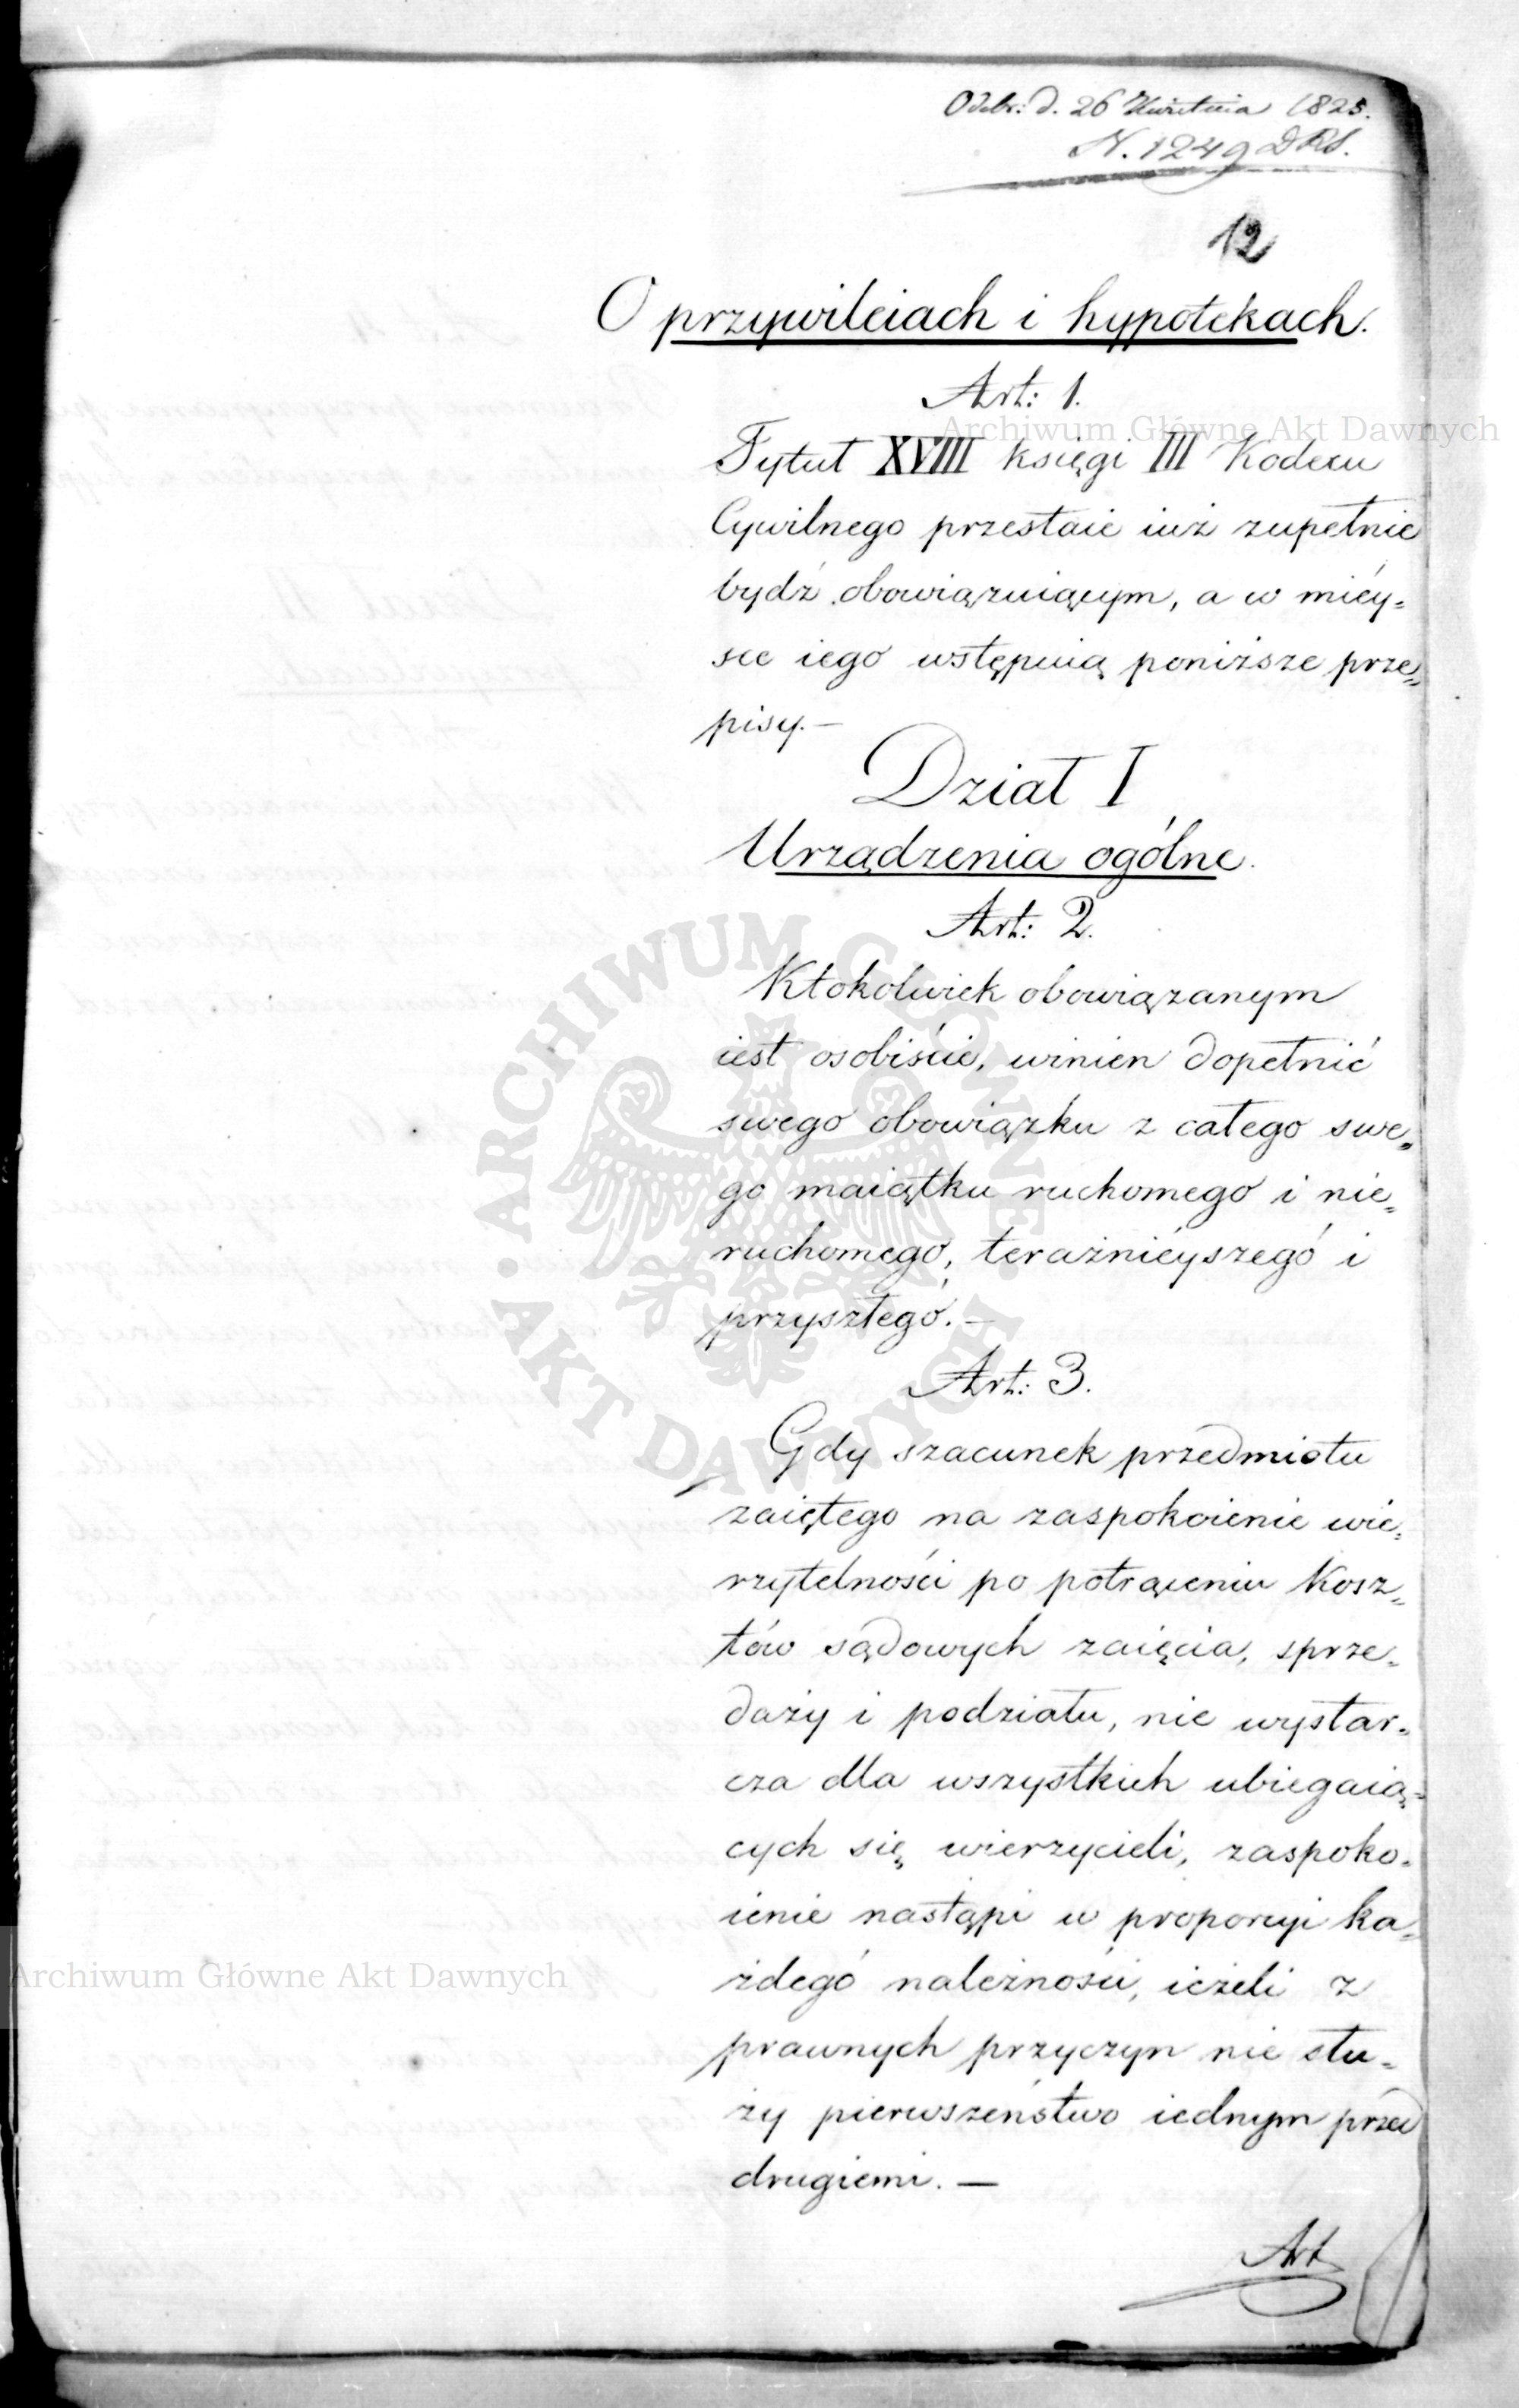 Odebr: d. 26 Kwietnia 1825.
N. 1249 DRS.
12
O przywileiach i hypotekach.
Art: 1.
Tytuł XVIII księgi III Kodexu
Cywilnego przestaie iuż zupełnie
bydź obowiązuiącym, a w miéy=
sce iego wstępuią poniższe prze=
pisy.—
Dział I
Urządzenia ogólne.
Art: 2.
Ktokolwiek obowiązanym
iest osobiście, winien dopełnić
swego obowiązku z całego swe=
go maiątku ruchomego i nie=
ruchomego, teraźniéyszegó i
przyszłegó.—
Art: 3.
Gdy szacunek przedmiotu
zaiętego na zaspokoienie wie=
rzytelności po potrąceniu kosz=
tów sądowych zaięcia, sprze=
daży i podziału, nie wystar=
cza dla wszystkich ubiegaią=
cych się wierzycieli, zaspoko=
ienie nastąpi w proporcyi ka=
żdegó należności, ieżeli z
prawnych przyczyn nie słu=
ży pierwszeństwo iednym przed
drugiemi.—
Art
Archiwum Główne Akt Dawnych
ARCHIWUM GŁÓWNE AKT DAWNYCH
Archiwum Główne Akt Dawnych